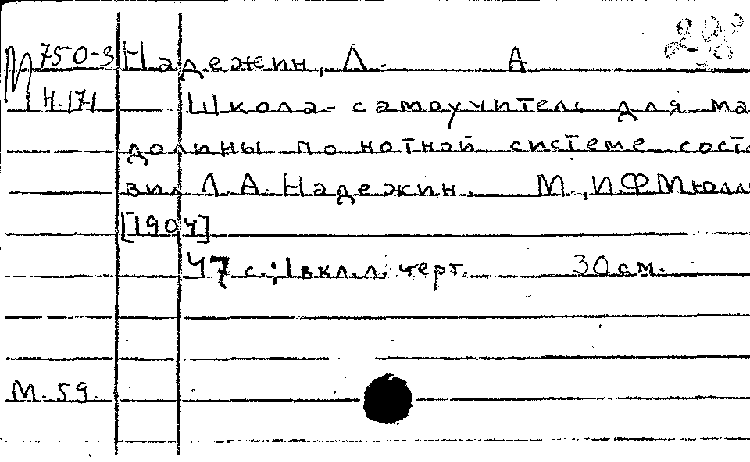 М 750-3 Надежин, Л. А
Н.171 Школа-самоучитель для ма
долины по нотной системе сост
вил Л.А. Надежин. М., И.Ф.Мюлл
[1904]
47 с.; 1 вкл.л. черт. 30 см.
М. 59.